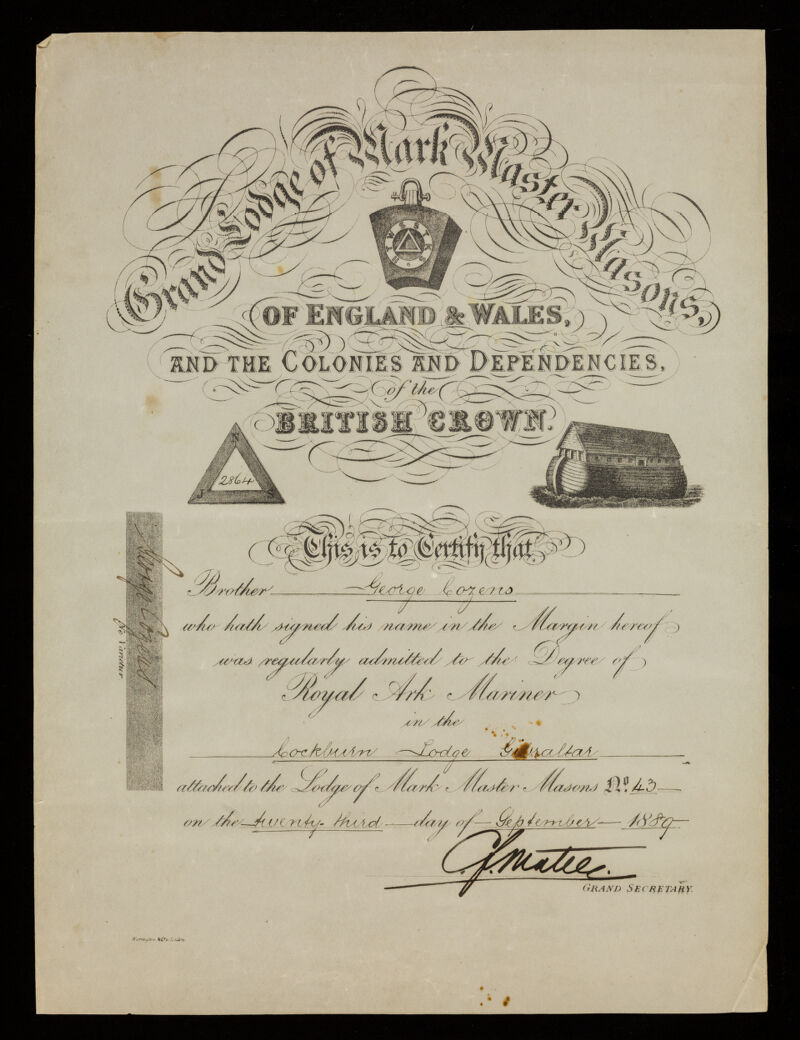 Grand Lodge of Mark Master Masons,
OF ENGLAND & WALES,
AND THE COLONIES AND DEPENDENCIES,
of the
BRITISH CROWN.
N
2864
J S
This is to Certify that
Brother George Cozens
who hath signed his name in the Margin hereof
was regularly admitted to the Degree of
Royal Ark Mariner
in the
Cockburn Lodge Gibraltar
attached to the Lodge of Mark Master Masons No. 43
on the twenty third day of September 1889
GRAND SECRETARY.
George Cozens
Ne Varietur